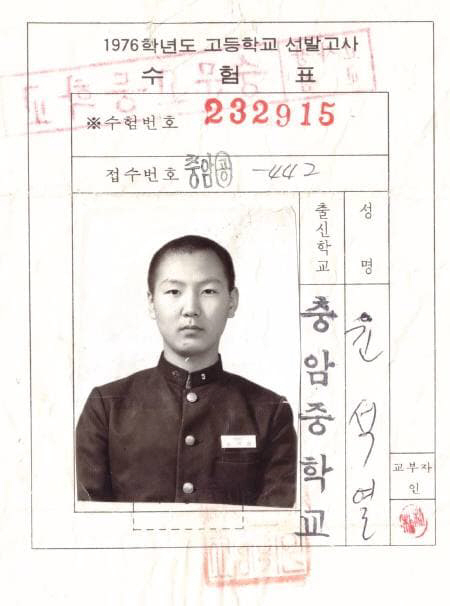 1976학년도 고등학교 선발고사
수 험 표
※수험번호 232915
접수번호 충암공 -442
출신학교
충암중학교
성 명
윤석열
교부자
인